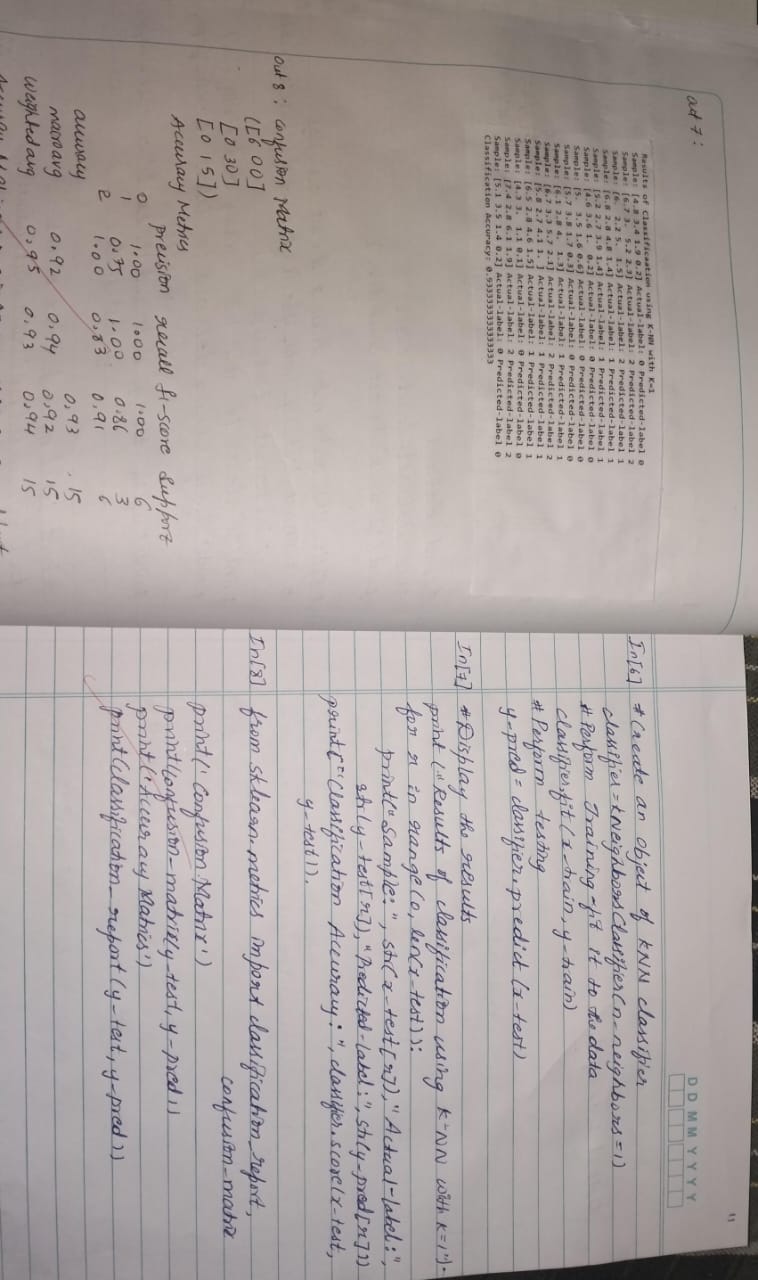 out 7:
Results of Classification using K-NN with K=1
Sample: [4.8 3.4 1.9 0.2] Actual-label: 0 Predicted-label 0
Sample: [6.7 3. 5.2 2.3] Actual-label: 2 Predicted-label 2
Sample: [6. 2.2 5. 1.5] Actual-label: 2 Predicted-label 1
Sample: [6.8 2.8 4.8 1.4] Actual-label: 1 Predicted-label 1
Sample: [5.2 2.7 3.9 1.4] Actual-label: 1 Predicted-label 1
Sample: [4.6 3.6 1. 0.2] Actual-label: 0 Predicted-label 0
Sample: [5. 3.5 1.6 0.6] Actual-label: 0 Predicted-label 0
Sample: [5.7 3.8 1.7 0.3] Actual-label: 0 Predicted-label 0
Sample: [6.1 2.8 4. 1.3] Actual-label: 1 Predicted-label 1
Sample: [6.7 3.3 5.7 2.1] Actual-label: 2 Predicted-label 2
Sample: [5.8 2.7 4.1 1. ] Actual-label: 1 Predicted-label 1
Sample: [6.5 2.8 4.6 1.5] Actual-label: 1 Predicted-label 1
Sample: [4.3 3. 1.1 0.1] Actual-label: 0 Predicted-label 0
Sample: [7.4 2.8 6.1 1.9] Actual-label: 2 Predicted-label 2
Sample: [5.1 3.5 1.4 0.2] Actual-label: 0 Predicted-label 0
Classification Accuracy: 0.9333333333333333
out 8: Confusion Matrix
([6 00]
[0 30]
[0 15])
Accuracy Metrics
precision recall f1-score support
0 1.00 1.00 1.00 6
1 0.75 1.00 0.86 3
2 1.00 0.83 0.91 6
accuracy 0.93 15
macro avg 0.92 0.94 0.92 15
weighted avg 0.95 0.93 0.94 15
11
DD MM YYYY
In[6] # Create an object of KNN classifier
classifier = KNeighborsClassifier(n-neighbors=1)
# Perform Training-fit it to the data
classifier.fit (x-train, y-train)
# Perform testing
y-pred = classifier.predict (x-test)
In[7] # Display the results
print ("Results of classification using K-NN with K=1")
for r in range(0, len(x-test)):
print("Sample:", str(x-test[r]), "Actual-label:",
str(y-test[r]), "Predicted-label:", str(y-pred[r]))
print("Classification Accuracy:", classifier.score(x-test,
y-test)).
In[8] from sklearn.metrics import classification_report,
confusion-matrix
print('Confusion Matrix')
print(confusion-matrix(y-test, y-pred))
print('Accuracy Matrics')
print(classification_report (y-test, y-pred))